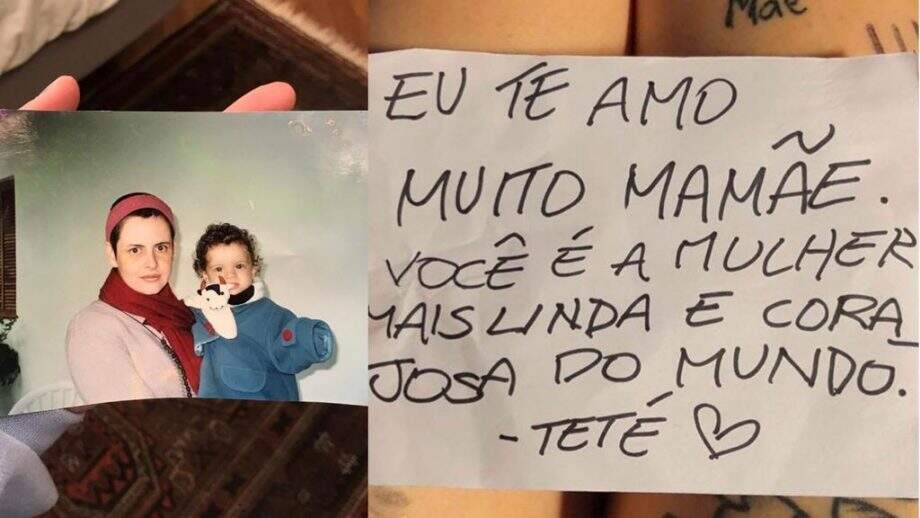 Mãe
EU TE AMO
MUITO MAMÃE.
VOCÊ É A MULHER
MAIS LINDA E CORA_
JOSA DO MUNDO.
- TETÉ ♡